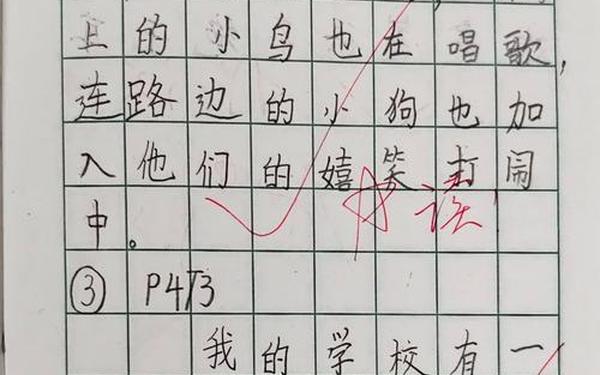 上的小鸟也在唱歌,
连路边的小狗也加
入他们的嬉笑打闹
中。
③ P4T3
我的学校有一